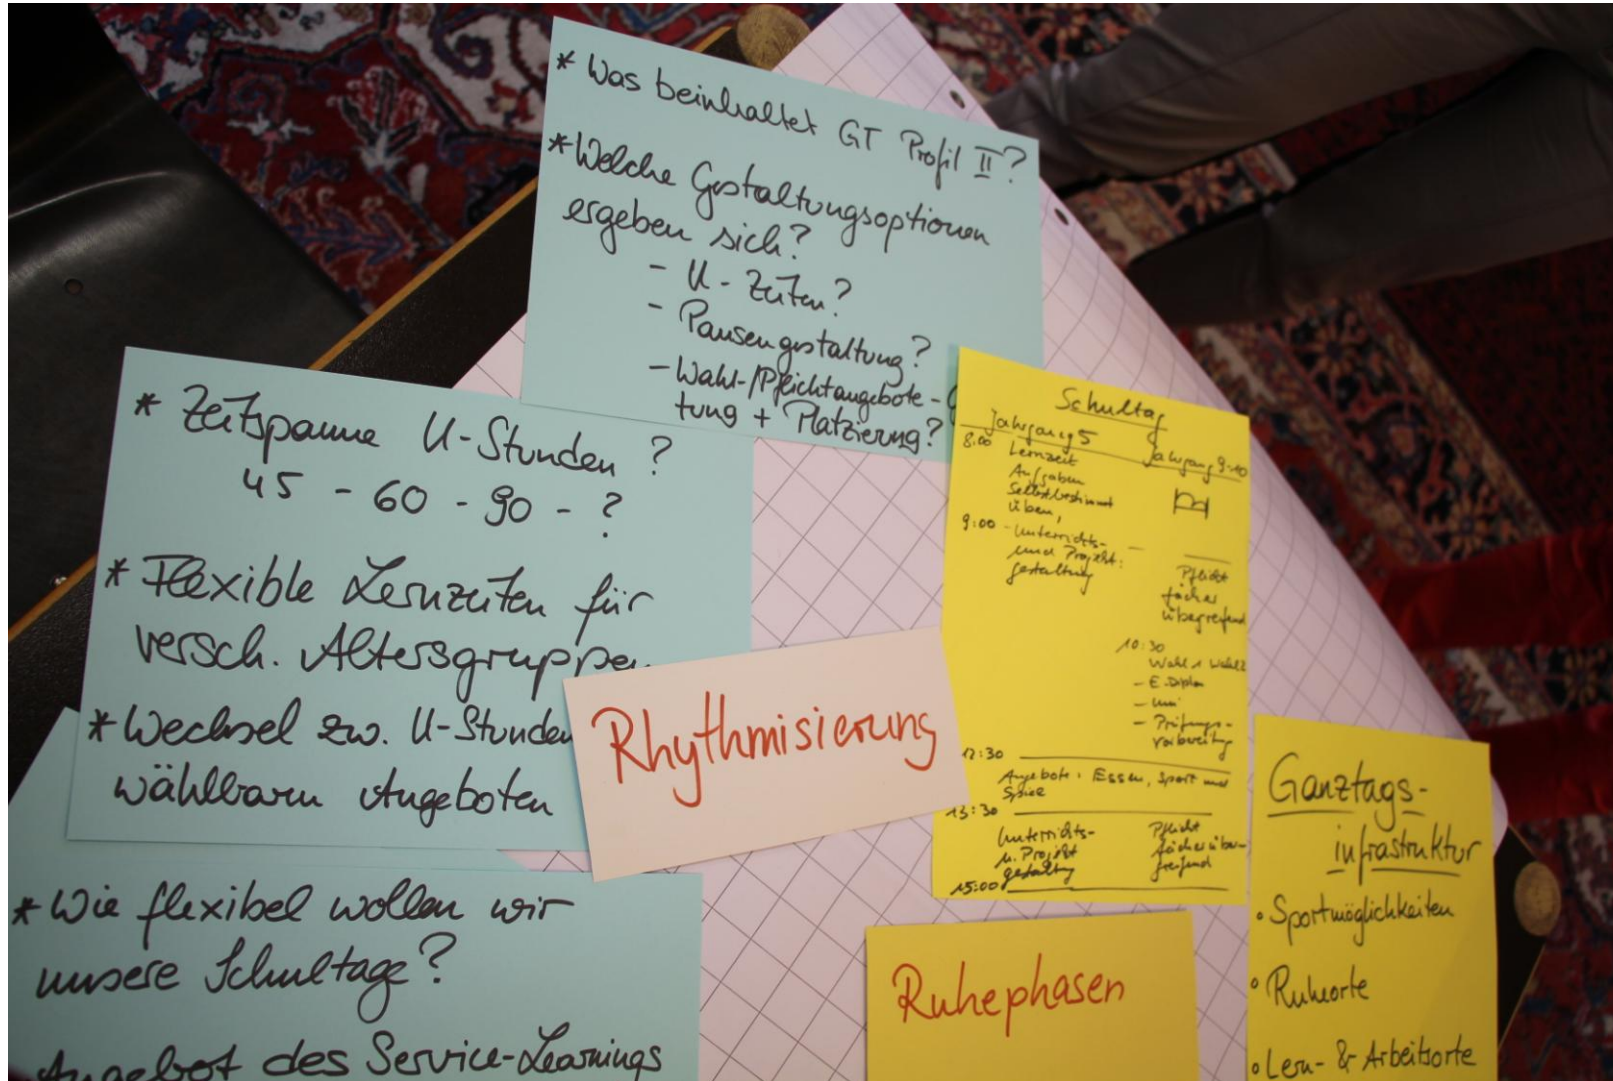 * Was beinhaltet GT Profil II?
* Welche Gestaltungsoptionen
ergeben sich?
- U-Zeiten?
- Pausengestaltung?
- Wahl-/Pflichtangebote -
tung + Platzierung?
* Zeitspanne U-Stunden?
45 - 60 - 90 - ?
* Flexible Lernzeiten für
versch. Altersgruppen
* Wechsel zw. U-Stunden
wählbaren Angeboten
Rhythmisierung
* Wie flexibel wollen wir
unsere Schultage?
Angebot des Service-Learnings
Schultag
Jahrgang 5
Jahrgang 9-10
8:00 Lernzeit
Aufgaben
Selbstbestimmt
üben,
9:00 - Unterrichts-
und Projekt:
gestaltung
Pflicht
fächer
übergreifend
10:30
Wahl 1 Wahl 2
- E-Diplom
- Uni
- Prüfungs-
vorbereitung
12:30
Angebote: Essen, Sport und
Spiele
13:30
Unterrichts-
u. Projekt
gestaltung
Pflicht
fächerüber-
greifend
15:00
Ruhephasen
Ganztags-
infrastruktur
• Sportmöglichkeiten
• Ruheorte
• Lern- & Arbeitsorte